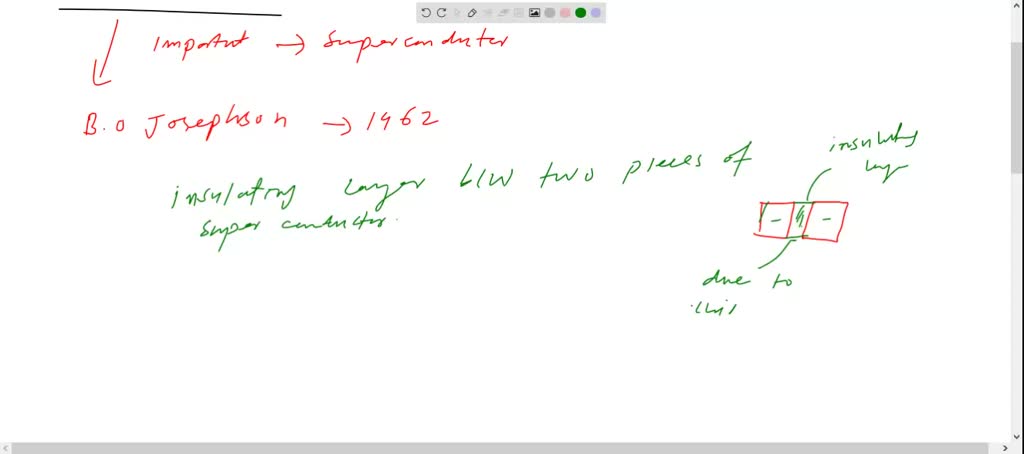 Important → Superconductor
B.O Josephson → 1962
insulating layer b/w two pieces of
super conductor.
insulating
layer
due to
this